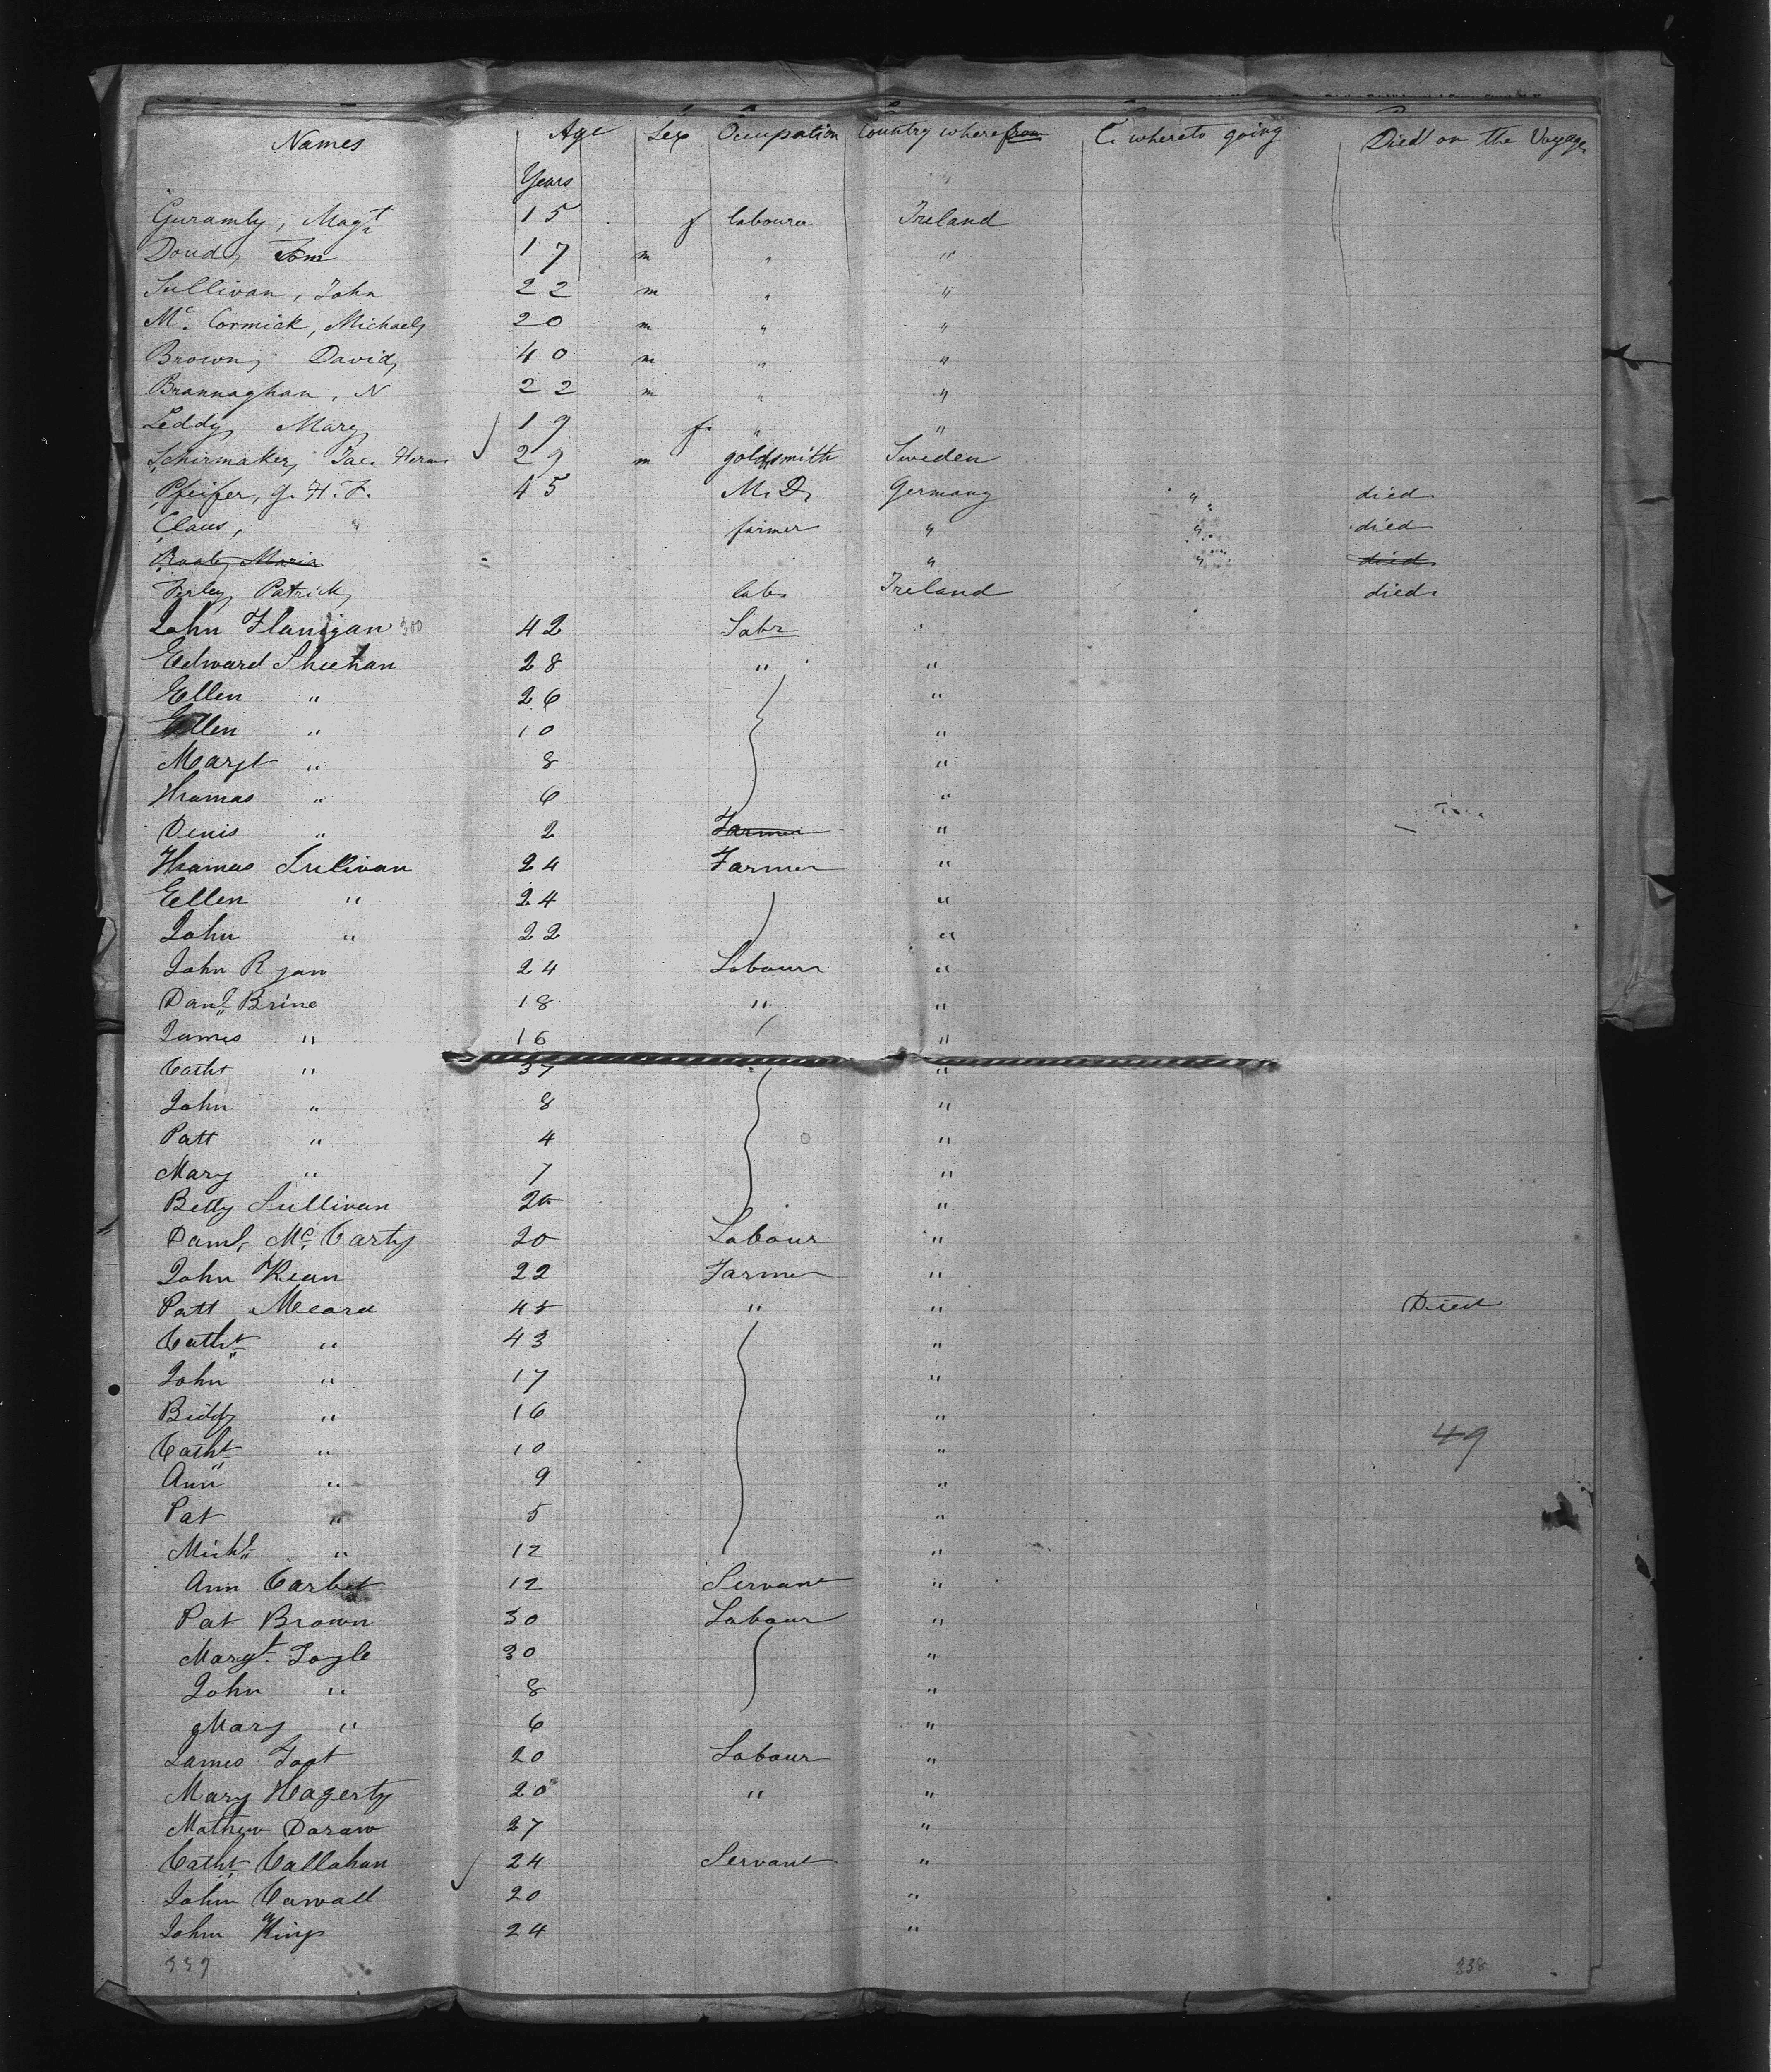 Names Age Sex Occupation Country where from C. whereto going Died on the Voyage
Years "
Guramly, Magt 15 f labourer Ireland
Doud, Tom 17 m " "
Sullivan, John 22 m " "
Mc. Cormick, Michael, 20 m " "
Brown, David, 40 m " "
Brannaghan, N 22 m " "
Leddy, Mary 19 f. " "
Schirmaker, Jac. Herm. 29 m goldsmith Sweden
Pfeifer, G. H. F. 45 M. D. Germany " died
Claus, " farmer " " died
Maria " " died
Patrick, lab. Ireland died.
John Flanigan 300 42 Labr "
Edward Sheehan 28 " "
Ellen " 26 "
Ellen " 10 "
Margt " 8 "
Thomas " 6 "
Denis " 2 Farmer "
Thomas Sullivan 24 Farmer "
Ellen " 24 "
John " 22 "
John Ryan 24 Labour "
Danl. Brine 18 " "
James " 16 "
Catht " 37 "
John " 8 "
Patt " 4 "
Mary " 7 "
Betty Sullivan "
Danl. Mc. Carty 20 Labour "
John Kean 22 Farmer "
Patt Meara 45 " " Died
Catht " 43 "
John " 17 "
Biddy " 16 "
49
Catht " 10 "
Ann " 9 "
Pat " 5 "
Michl " 12 "
Ann Carbet 12 Servant "
Pat Brown 30 Labour "
Margt. 30 "
John " 8 "
Mary " 6 "
James 20 Labour "
Mary Hagerty 20 " "
Mathew Daraw 27 "
Catht. Callahan 24 Servant "
John Carwall 20 "
John King 24 "
339 338